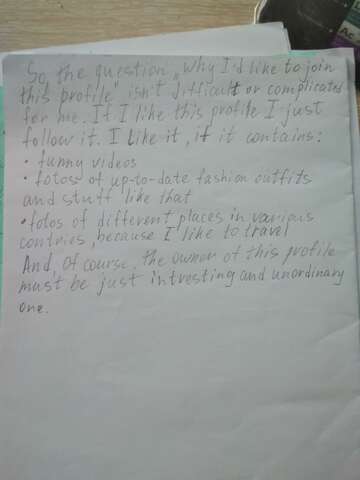 So, the question „why I'd like to join
this profile" isn't difficult or complicated
for me. If I like this profile I just
follow it. I like it, if it contains:
• funny videos
• fotos of up-to-date fashion outfits
and stuff like that
• fotos of different places in various
contries, because I like to travel
And, of course, the owner of this profile
must be just intresting and unordinary
one.